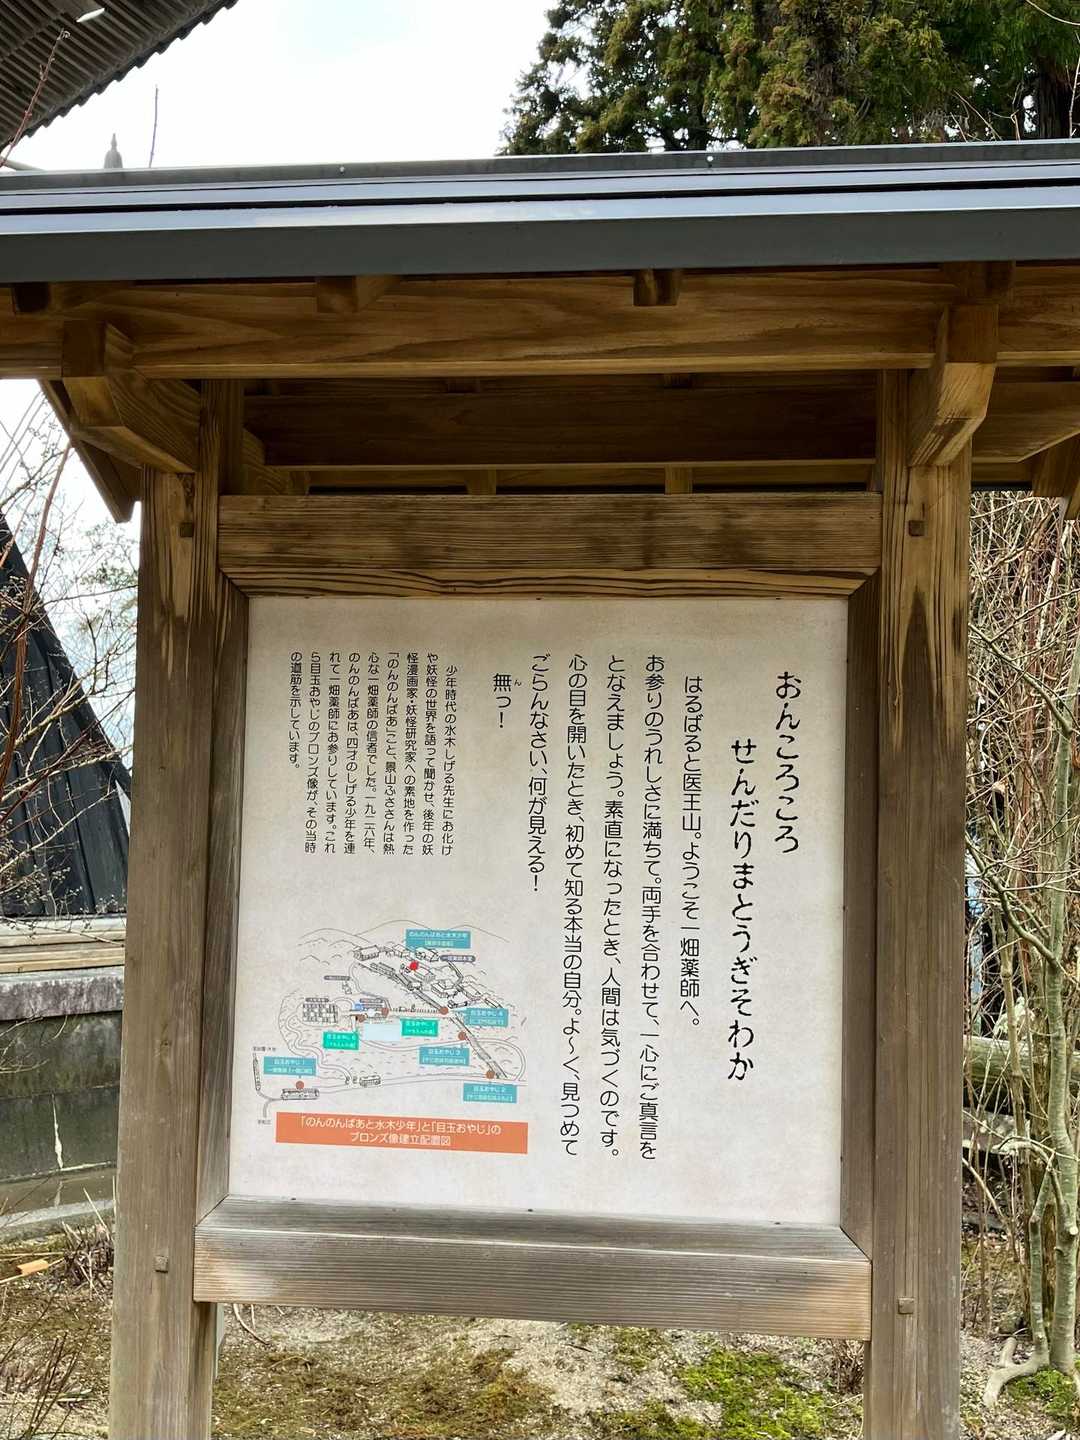 おんころころ
せんだりまとうぎそわか
はるばると医王山。ようこそ一畑薬師へ。
お参りのうれしさに満ちて。両手を合わせて、一心にご真言を
となえましょう。素直になったとき、人間は気づくのです。
心の目を開いたとき、初めて知る本当の自分。よ〜く、見つめて
ごらんなさい、何が見える！
無っ！
ん
少年時代の水木しげる先生にお化け
や妖怪の世界を語って聞かせ、後年の妖
怪漫画家・妖怪研究家への素地を作った
「のんのんばあ」こと、景山ふささんは熱
心な一畑薬師の信者でした。一九二六年、
のんのんばあは、四才のしげる少年を連
れて一畑薬師にお参りしています。これ
ら目玉おやじのブロンズ像が、その当時
の道筋を示しています。
のんのんばあと水木少年
一畑薬師本堂
目玉おやじ 4
目玉おやじ 7
目玉おやじ 6
目玉おやじ 3
目玉おやじ 1
目玉おやじ 2
「のんのんばあと水木少年」と「目玉おやじ」の
ブロンズ像建立配置図